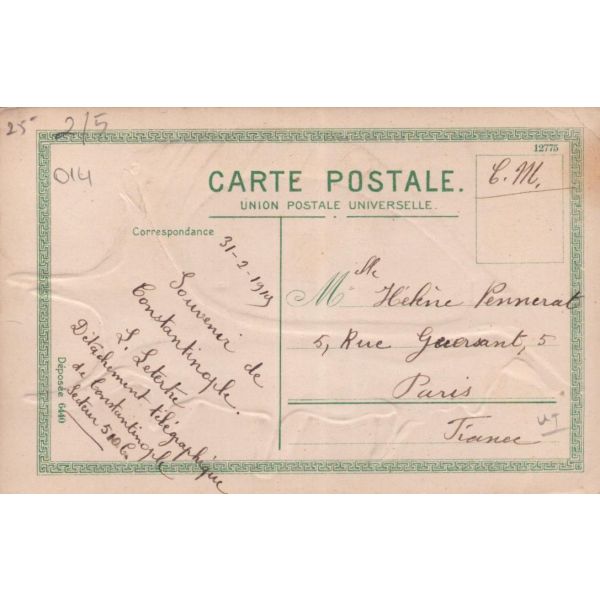 25
2/5
014
12775
CARTE POSTALE.
UNION POSTALE UNIVERSELLE.
F. M.
Correspondance
31-2-1919
Souvenir de
Constantinople.
L. Letertre
Détachement télégraphique
de Constantinople
Secteur 510
Mlle Hélène Pennerat
5, Rue Guersant, 5
Paris
France
Déposée 6440